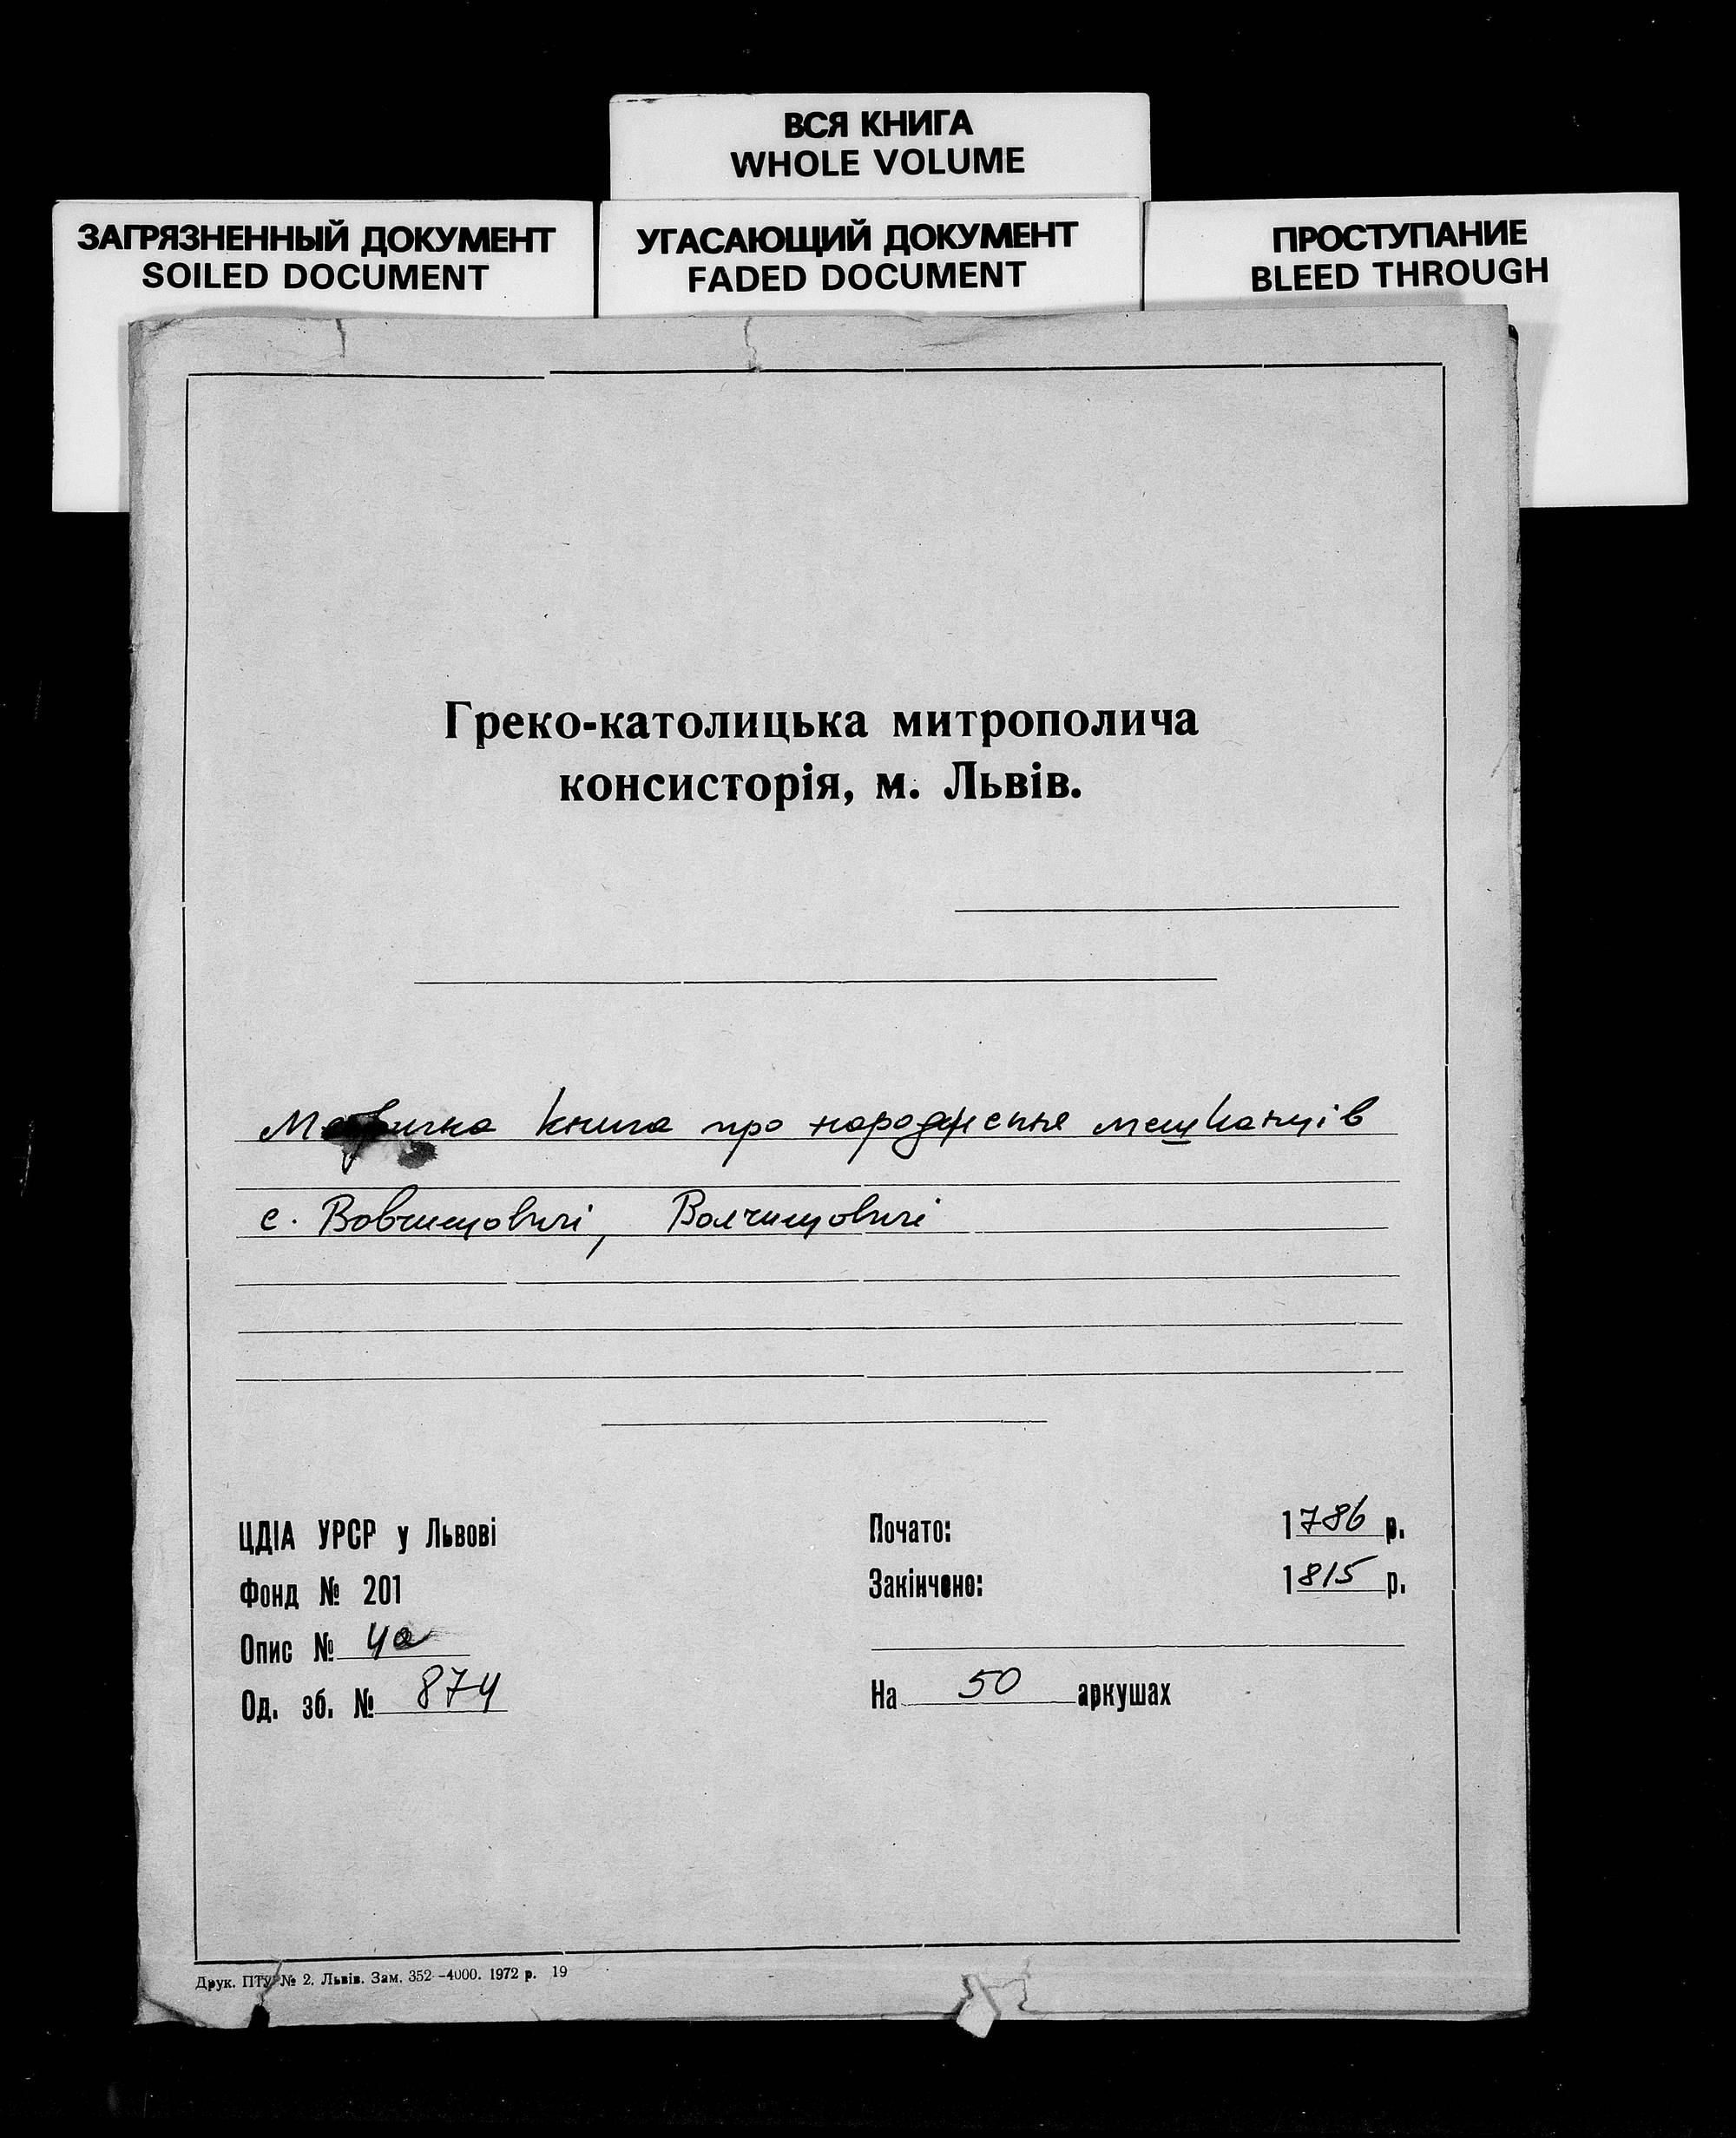 ВСЯ КНИГА
WHOLE VOLUME
ЗАГРЯЗНЕННЫЙ ДОКУМЕНТ
SOILED DOCUMENT
УГАСАЮЩИЙ ДОКУМЕНТ
FADED DOCUMENT
ПРОСТУПАНИЕ
BLEED THROUGH
Греко-католицька митрополича
консисторія, м. Львів.
книга про народження мешканців
с. Вовчищовичі, Волчищовичі
ЦДІА УРСР у Львові
Фонд № 201
Опис № 4а
Од. зб. № 874
Почато: 1786 р.
Закінчено: 1815 р.
На 50 аркушах
Друк. ПТУ № 2. Львів. Зам. 352-4000. 1972 р. 19